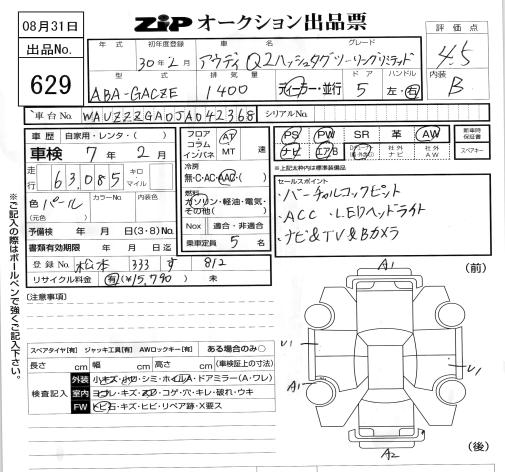 08月31日
ZIP オークション出品票
出品No.
629
年式 初年度登録 車名 グレード 評価点
30年2月 アウディ Q2ハッシュタグツーリングリミテッド 4.5
型式 排気量 ドア ハンドル 内装
ABA-GACZE 1400 ディーラー・並行 5 左・右 B
車台No. WAUZZZGA0JA042368 シリアルNo.
車歴 自家用・レンタ・( )
車検 7年2月
走行 63,085 キロ マイル
色 パール カラーNo. 内装色
(元色)
予備検 年 月 日(3・8)No.
書類有効期限 年 月 日迄
登録No. 松本 333 す 812
リサイクル料金 有(¥15,790) 未
フロア コラム インパネ AT MT 速
冷房
無・C・AC・AAC・( )
燃料
ガソリン・軽油・電気・その他( )
Nox 適合・非適合
乗車定員 5 名
PS PW SR 革 AW 新車時保証書
ナビ エアB 社外ナビ 社外AW スペアキー
※上記太枠内は標準装備品
セールスポイント
・バーチャルコックピット
・ACC ・LEDヘッドライト
・ナビ&TV&Bカメラ
[注意事項]
スペアタイヤ[有] ジャッキ工具[有] AWロックキー[有] ある場合のみ○
長さ cm 幅 cm 高さ cm (車検証上の寸法)
検査記入
外装 小キズ・小凹・シミ・ホイルA・ドアミラー(A・ワレ)
室内 ヨゴレ・キズ・スレ・コゲ・穴・キレ・破れ・ウキ
FW トビ石・キズ・ヒビ・リペア跡・X要ス
※ご記入の際はボールペンで強くご記入下さい。
A1 (前)
U1
U1
A1
A2 (後)